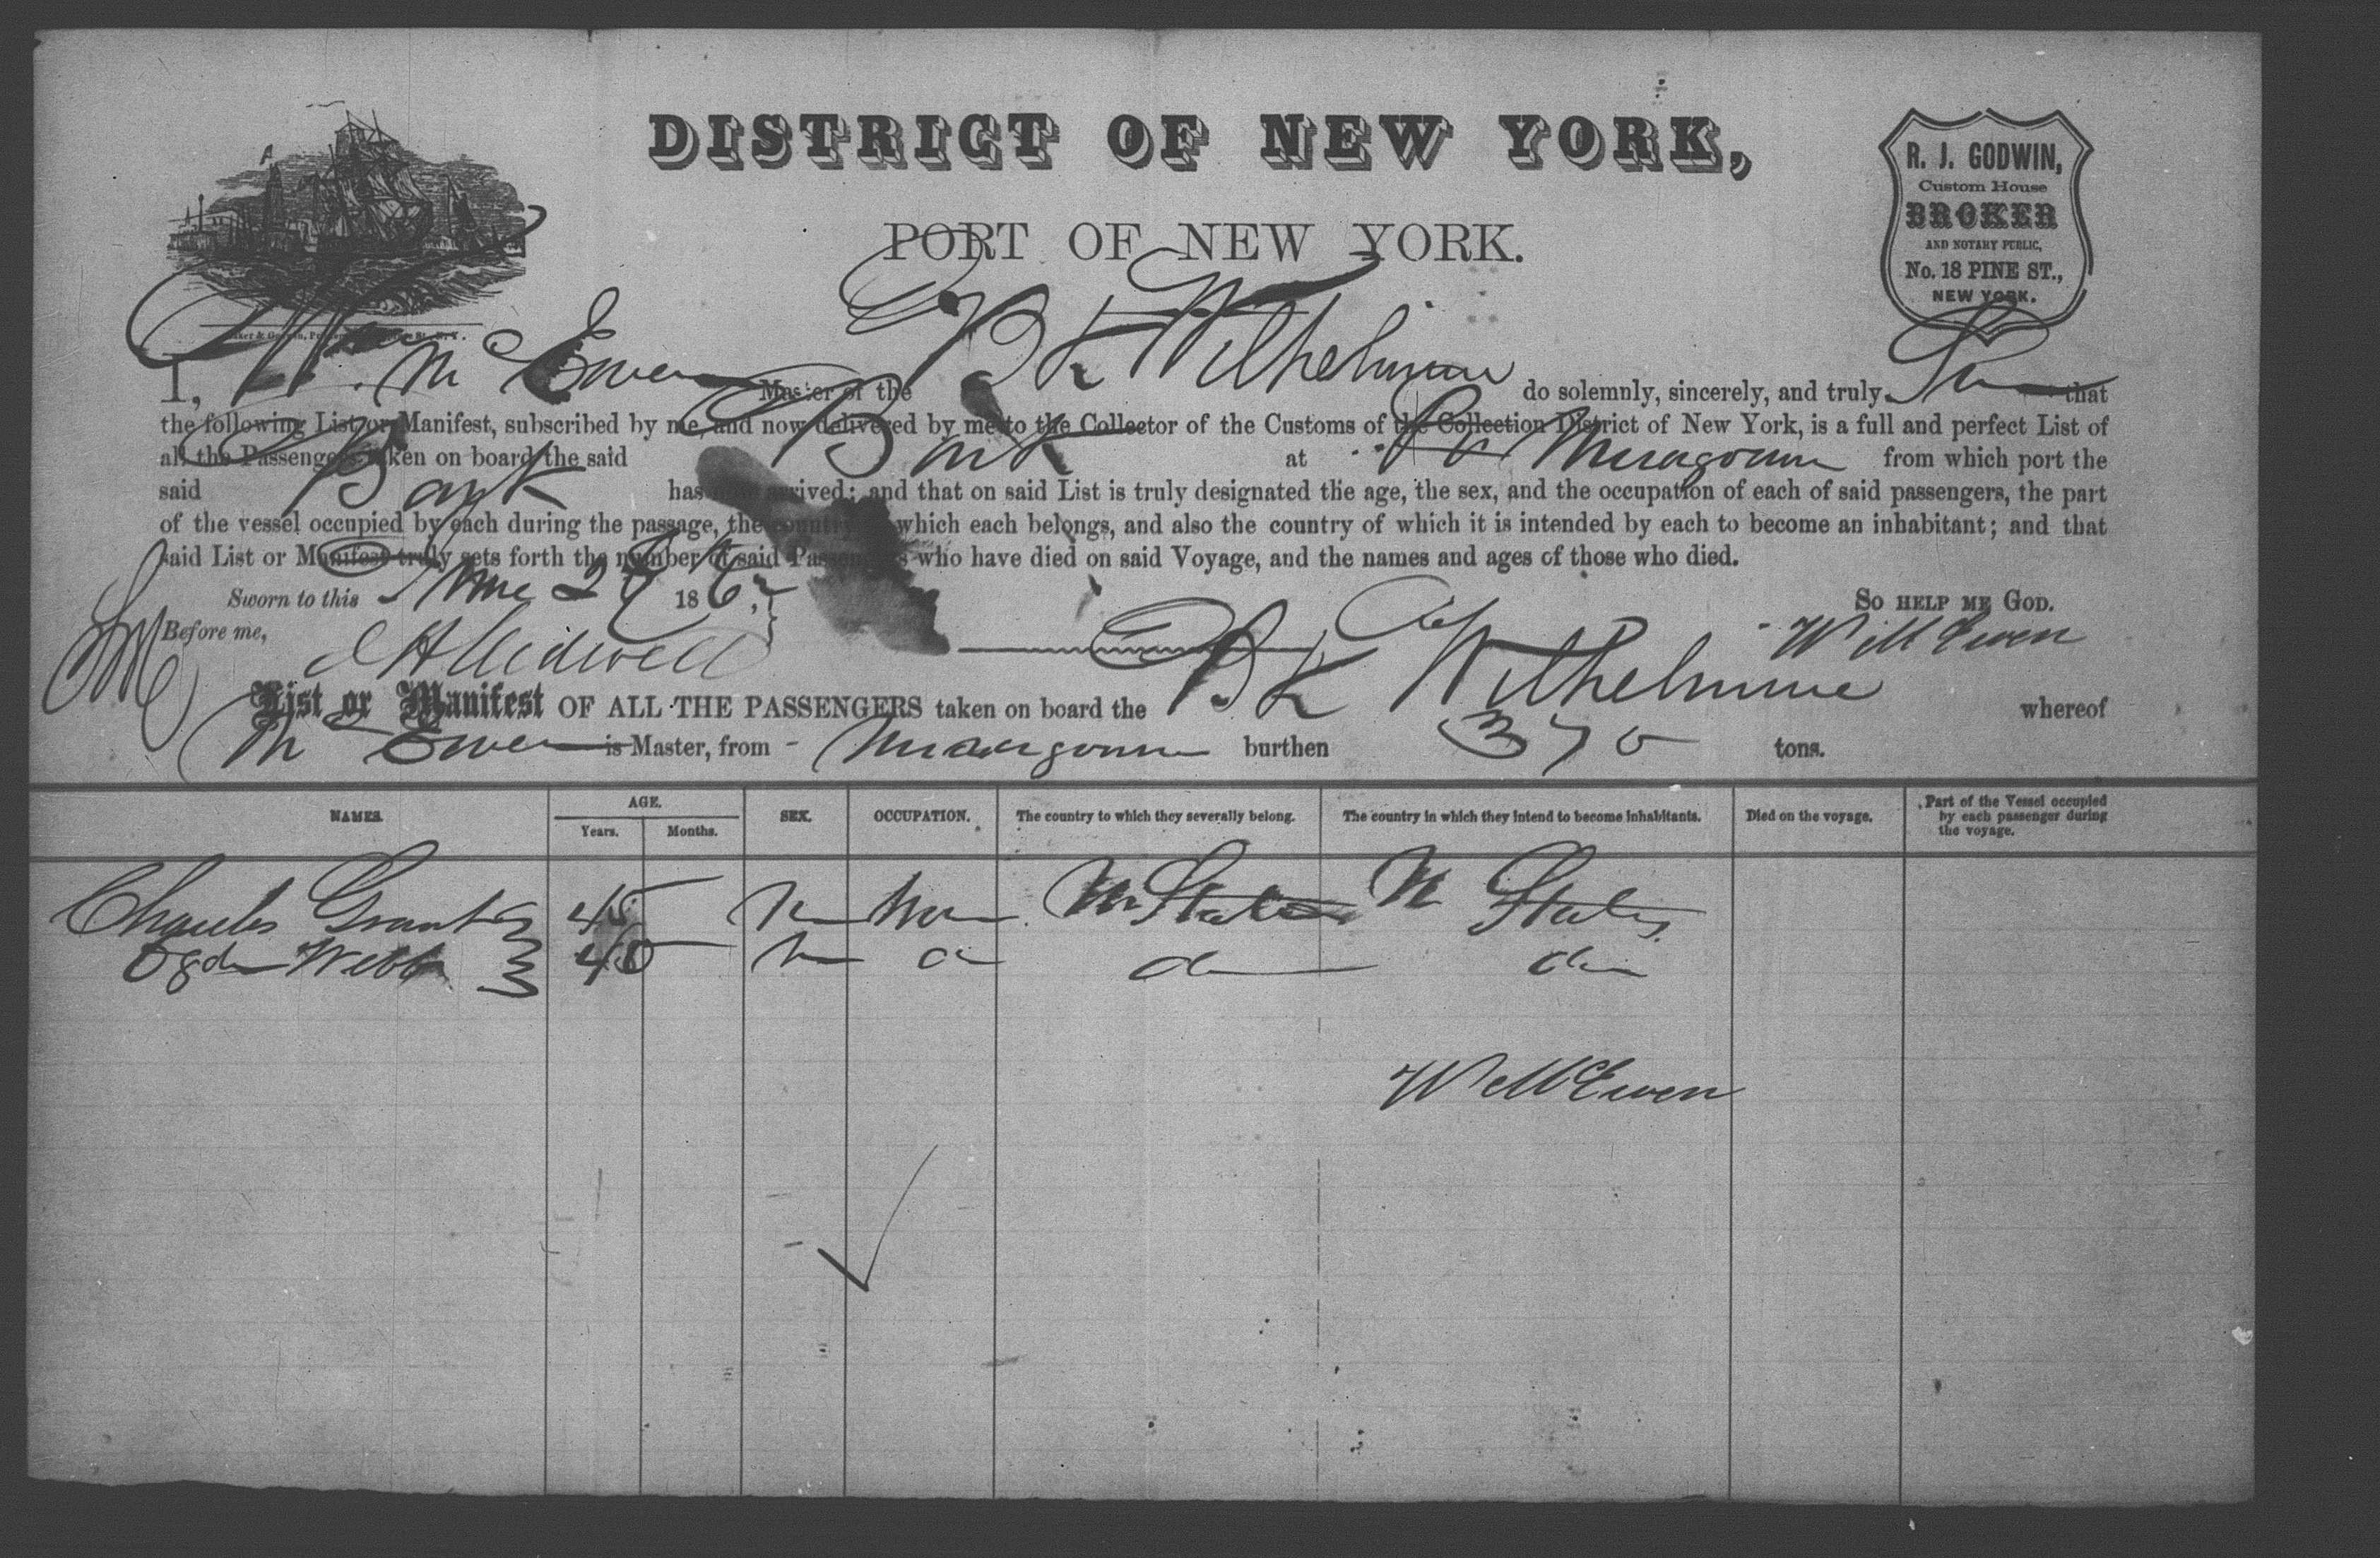 DISTRICT OF NEW YORK,
PORT OF NEW YORK.
R. J. GODWIN,
Custom House
BROKER
AND NOTARY PUBLIC,
No. 18 PINE ST.,
NEW YORK.
I, W. McEwen Master of the Bk Wilhelmine do solemnly, sincerely, and truly that
the following List or Manifest, subscribed by me, and now delivered by me to the Collector of the Customs of the Collection District of New York, is a full and perfect List of
all the Passengers taken on board the said Bark at Miragoane from which port the
said Bark has now arrived; and that on said List is truly designated the age, the sex, and the occupation of each of said passengers, the part
of the vessel occupied by each during the passage, the country to which each belongs, and also the country of which it is intended by each to become an inhabitant; and that
said List or Manifest truly sets forth the number of said Passengers who have died on said Voyage, and the names and ages of those who died.
Sworn to this June 186 SO HELP ME GOD.
Before me, W McEwen
List or Manifest OF ALL THE PASSENGERS taken on board the Bk Wilhelmine whereof
McEwen is Master, from Miragoane burthen 370 tons.
NAMES. AGE. Years. Months. SEX. OCCUPATION. The country to which they severally belong. The country in which they intend to become inhabitants. Died on the voyage. Part of the Vessel occupied by each passenger during the voyage.
Charles Grant 45 M U States U States
Ogden Webb 40 M do do do
W McEwen